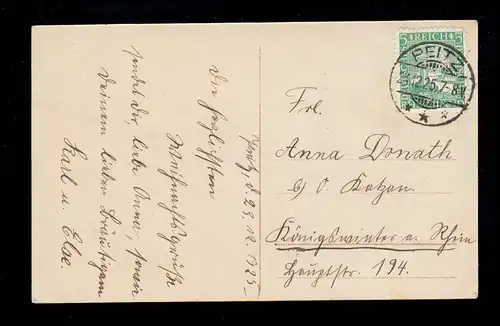 Peitz, d. 23. 12. 1925.
Die herzlichsten
Weihnachtsgrüße
sendet dir, liebe Anna, sowie
Deinem lieben Bräutigam
Karl u. Else.
5 REICH 5
PEITZ
12.25.7-8
Frl.
Anna Donath
b/ O. Katzan.
Königswinter a. Rhein
Hauptstr. 194.